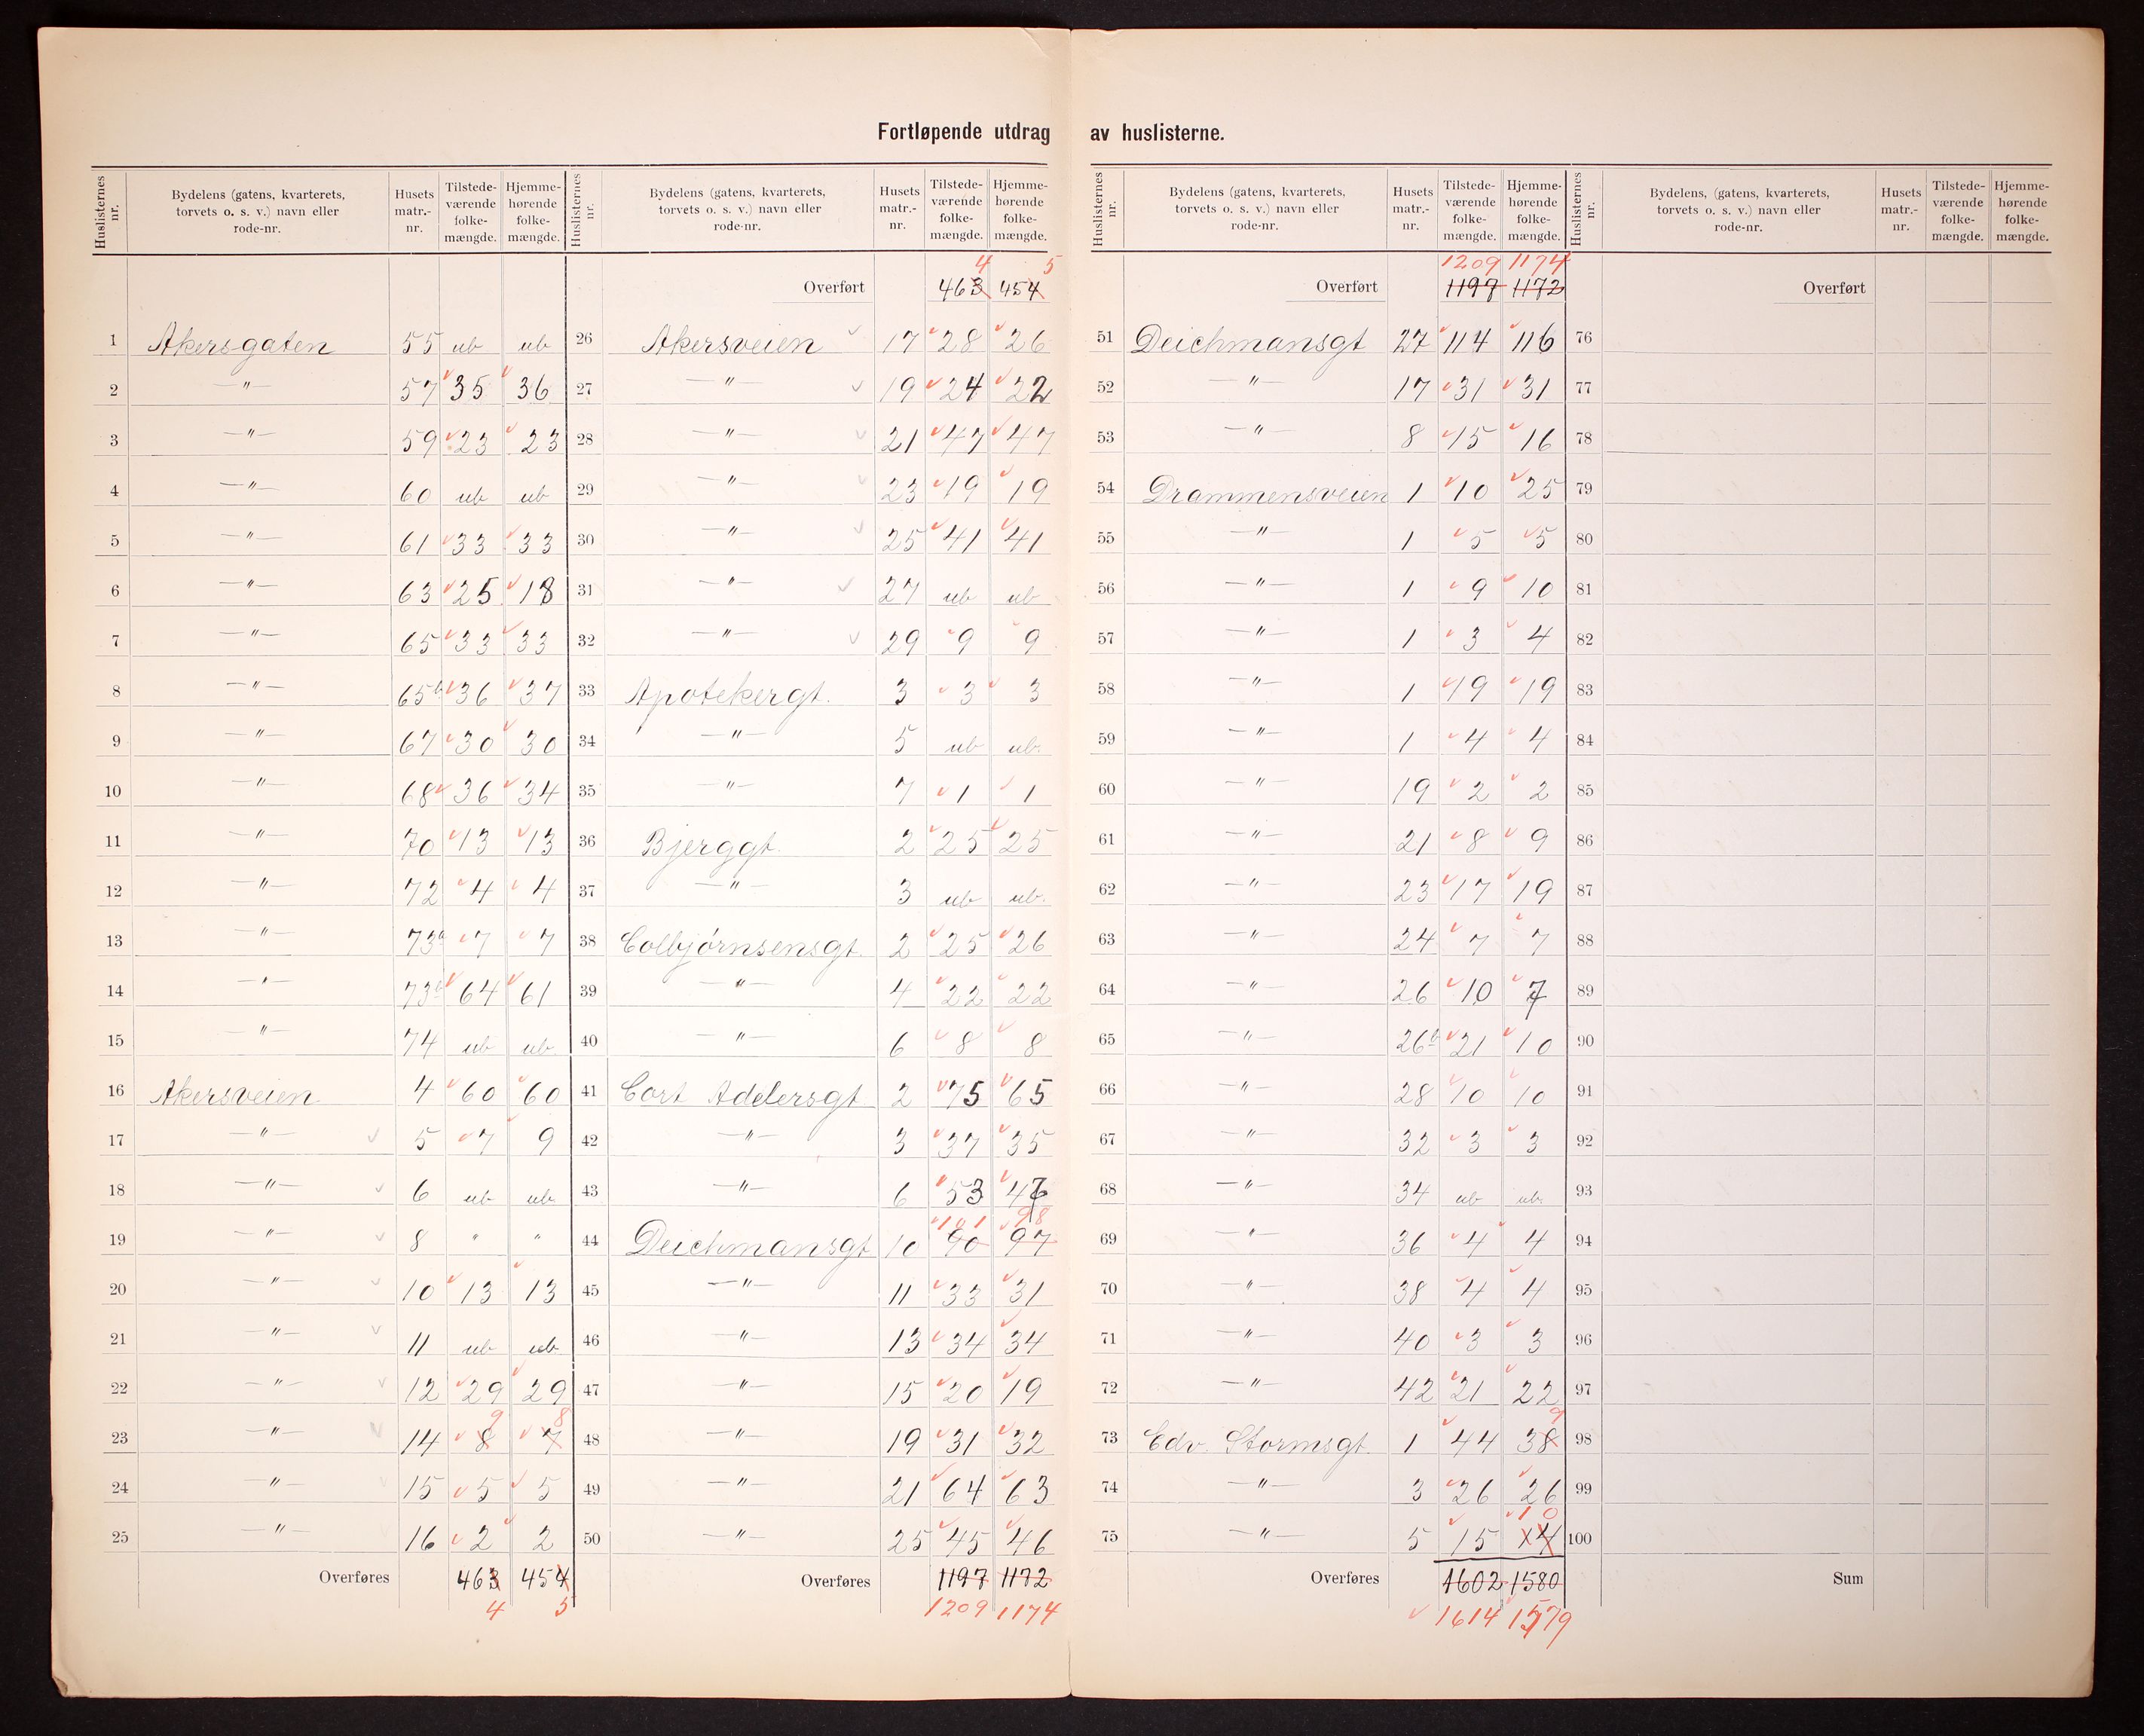 Fortløpende utdrag av huslisterne.
Huslisternes nr. | Bydelens (gatens, kvarterets, torvets o. s. v.) navn eller rode-nr. | Husets matr.-nr. | Tilstede-værende folke-mængde. | Hjemme-hørende folke-mængde.
1 Akersgaten 55 ub ub
2 —"— 57 35 36
3 —"— 59 23 23
4 —"— 60 ub ub
5 —"— 61 33 33
6 —"— 63 25 18
7 —"— 65 33 33
8 —"— 65b 36 37
9 —"— 67 30 30
10 —"— 68 36 34
11 —"— 70 13 13
12 —"— 72 4 4
13 —"— 73a 7 7
14 —"— 73b 64 61
15 —"— 74 ub ub
16 Akersveien 4 60 60
17 —"— 5 7 9
18 —"— 6 ub ub
19 —"— 8 " "
20 —"— 10 13 13
21 —"— 11 ub ub
22 —"— 12 29 29
23 —"— 14 8 9 7 8
24 —"— 15 5 5
25 —"— 16 2 2
Overføres 463 454
4 5
Huslisternes nr. | Bydelens (gatens, kvarterets, torvets o. s. v.) navn eller rode-nr. | Husets matr.-nr. | Tilstede-værende folke-mængde. | Hjemme-hørende folke-mængde.
4 5
Overført 463 454
26 Akersveien 17 28 26
27 —"— 19 24 22
28 —"— 21 47 47
29 —"— 23 19 19
30 —"— 25 41 41
31 —"— 27 ub ub
32 —"— 29 9 9
33 Apotekergt. 3 3 3
34 —"— 5 ub ub.
35 —"— 7 1 1
36 Bjerggt. 2 25 25
37 —"— 3 ub ub.
38 Colbjørnsensgt. 2 25 26
39 —"— 4 22 22
40 —"— 6 8 8
41 Cort Adelersgt 2 75 65
42 —"— 3 37 35
43 —"— 6 53 47
101 98
44 Deichmansgt 10 90 97
45 —"— 11 33 31
46 —"— 13 34 34
47 —"— 15 20 19
48 —"— 19 31 32
49 —"— 21 64 63
50 —"— 25 45 46
Overføres 1197 1172
1209 1174
Huslisternes nr. | Bydelens (gatens, kvarterets, torvets o. s. v.) navn eller rode-nr. | Husets matr.-nr. | Tilstede-værende folke-mængde. | Hjemme-hørende folke-mængde.
1209 1174
Overført 1197 1172
51 Deichmansgt 27 114 116
52 —"— 17 31 31
53 —"— 8 15 16
54 Drammensveien 1 10 25
55 —"— 1 5 5
56 —"— 1 9 10
57 —"— 1 3 4
58 —"— 1 19 19
59 —"— 1 4 4
60 —"— 19 2 2
61 —"— 21 8 9
62 —"— 23 17 19
63 —"— 24 7 7
64 —"— 26 10 7
65 —"— 26b 21 10
66 —"— 28 10 10
67 —"— 32 3 3
68 —"— 34 ub ub.
69 —"— 36 4 4
70 —"— 38 4 4
71 —"— 40 3 3
72 —"— 42 21 22
9
73 Edv. Stormsgt. 1 44 38
74 —"— 3 26 26
10
75 —"— 5 15 14
Overføres 1602 1580
1614 1579
Huslisternes nr. | Bydelens, (gatens, kvarterets, torvets o. s. v.) navn eller rode-nr. | Husets matr.-nr. | Tilstede-værende folke-mængde. | Hjemme-hørende folke-mængde.
Overført
76
77
78
79
80
81
82
83
84
85
86
87
88
89
90
91
92
93
94
95
96
97
98
99
100
Sum